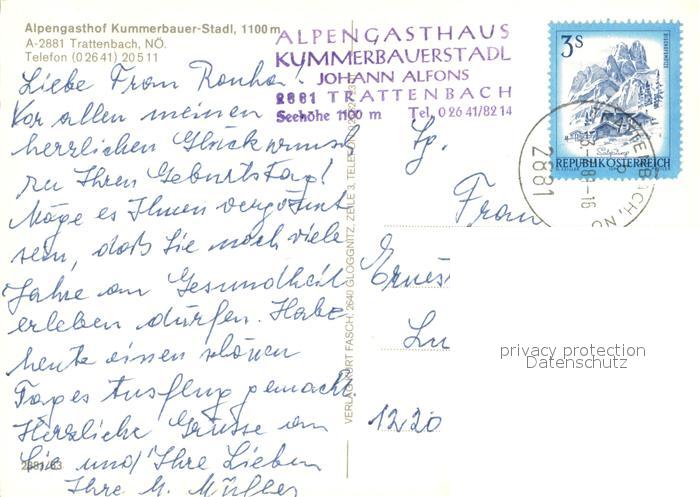 Alpengasthof Kummerbauer-Stadl, 1100 m
A-2881 Trattenbach, NÖ.
Telefon (0 26 41) 205 11
ALPENGASTHAUS
KUMMERBAUERSTADL
JOHANN ALFONS
2881 TRATTENBACH
Seehöhe 1100 m Tel. 0 26 41/82 14
3s
REPUBLIK ÖSTERREICH
2881
Liebe Frau
Vor allen meinen
herzlichen Glückwunsch
zu Ihren Geburtstag!
Möge es Ihnen vergönnt
sein, daß Sie noch viele
Jahre an Gesundheit
erleben dürfen. Habe
heute einen schönen
Tages Ausflug gemacht.
Herzliche Grüsse an
Sie und Ihre Lieben
Ihre M. Müller
2881/63
VERLAG KURT FASCH, 2640 GLOGGNITZ, ZEILE 3, TELEFON
Frau
1220
privacy protection
Datenschutz